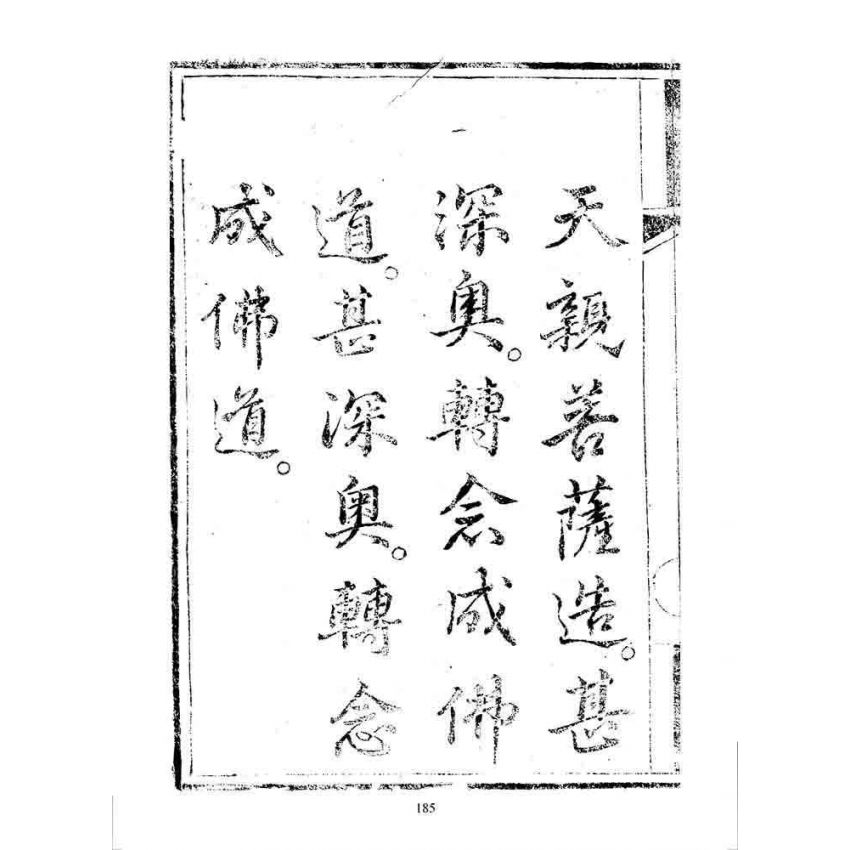 天親菩薩造。甚
深奥。轉念成佛
道。甚深奥。轉念
成佛道。
185